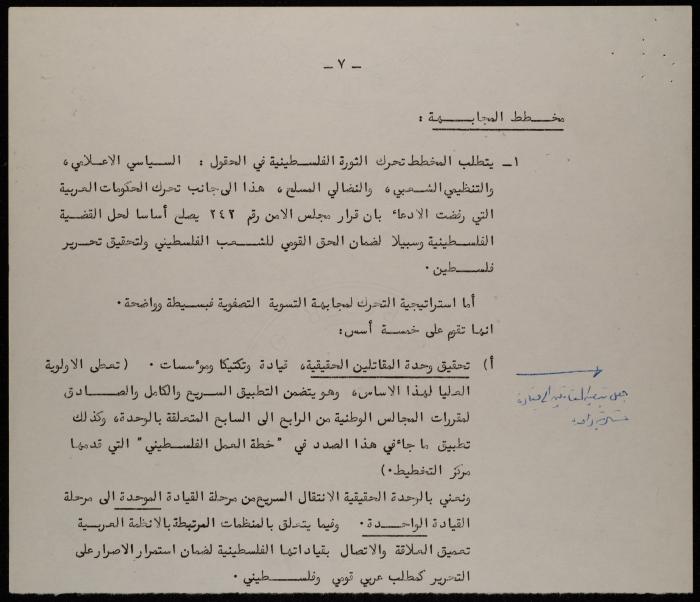 - ٧ -
مخطط المجابهة :
١- يتطلب المخطط تحرك الثورة الفلسطينية في الحقول : السياسي الاعلامي،
والتنظيمي الشعبي، والنضالي المسلح، هذا الى جانب تحرك الحكومات العربية
التي رفضت الادعاء بان قرار مجلس الامن رقم ٢٤٢ يصلح أساسا لحل القضية
الفلسطينية وسبيلا لضمان الحق القومي للشعب الفلسطيني ولتحقيق تحرير
فلسطين .
أما استراتيجية التحرك لمجابهة التسوية التصفوية فبسيطة وواضحة .
انها تقوم على خمسة أسس:
أ) تحقيق وحدة المقاتلين الحقيقية، قيادة وتكتيكا ومؤسسات . ( تعطى الاولوية
العليا لهذا الاساس، وهو يتضمن التطبيق السريع والكامل والصادق
لمقررات المجالس الوطنية من الرابع الى السابع المتعلقة بالوحدة، وكذلك
تطبيق ما جاء في هذا الصدد في "خطة العمل الفلسطيني" التي قدمها
مركز التخطيط .)
ونعني بالوحدة الحقيقية الانتقال السريع من مرحلة القيادة الموحدة الى مرحلة
القيادة الواحدة . وفيما يتعلق بالمنظمات المرتبطة بالانظمة العربية
تعميق العلاقة والاتصال بقياداتها الفلسطينية لضمان استمرار الاصرار على
التحرير كمطلب عربي قومي وفلسطيني .